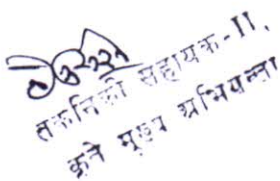 तकनिकी सहायक-II,
कृते मुख्य अभियन्ता